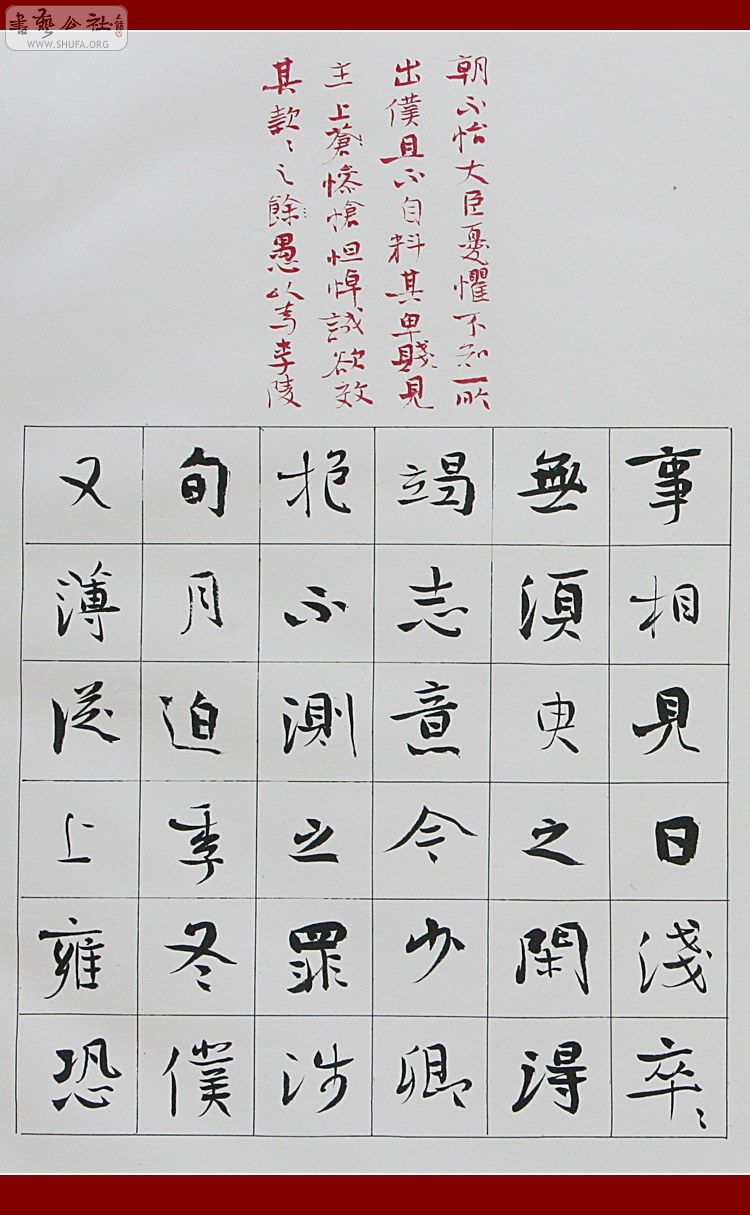 書藝公社
WWW.SHUFA.ORG
朝不怡大臣憂懼不知所
出僕且不自料其卑賤見
主上蒼慘愴怛悼誠欲效
其款〻之餘愚以為李陵
事相見日淺卒〻
無須臾之閑得
竭志意今少卿
抱不測之罪涉
旬月迫季冬僕
又薄從上雍恐